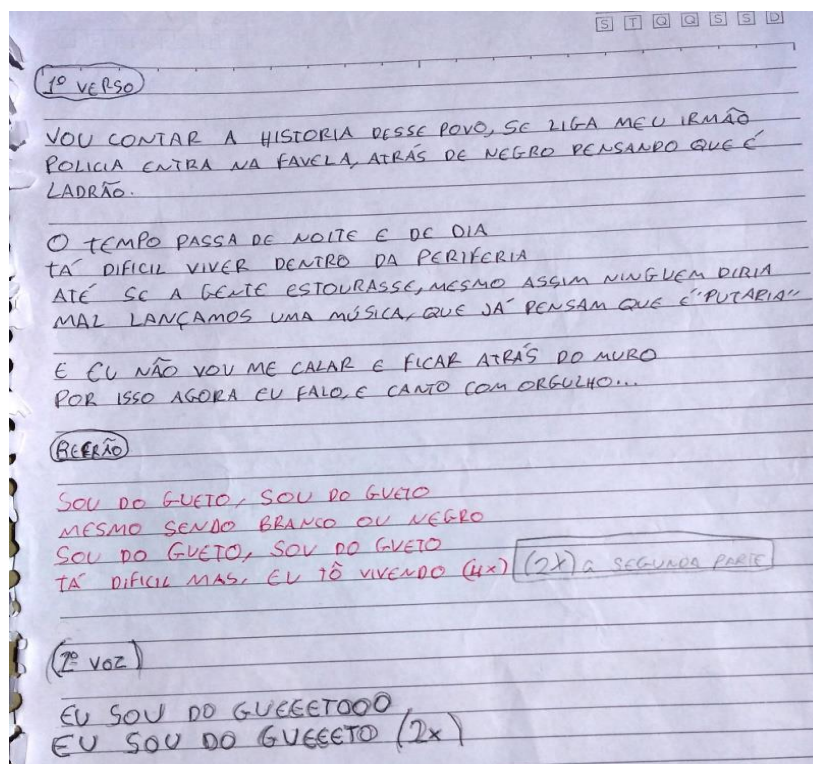 S T Q Q S S D
1º VERSO
VOU CONTAR A HISTORIA DESSE POVO, SE LIGA MEU IRMÃO
POLICIA ENTRA NA FAVELA, ATRÁS DE NEGRO PENSANDO QUE É
LADRÃO.
O TEMPO PASSA DE NOITE E DE DIA
TÁ DIFICIL VIVER DENTRO DA PERIFERIA
ATÉ SE A GENTE ESTOURASSE, MESMO ASSIM NINGUEM DIRIA
MAL LANÇAMOS UMA MÚSICA, QUE JÁ PENSAM QUE É "PUTARIA"
E EU NÃO VOU ME CALAR E FICAR ATRÁS DO MURO
POR ISSO AGORA EU FALO, E CANTO COM ORGULHO...
REFRÃO
SOU DO GUETO, SOU DO GUETO
MESMO SENDO BRANCO OU NEGRO
SOU DO GUETO, SOU DO GUETO
TÁ DIFICIL MAS, EU TÔ VIVENDO (4x) (2X) a SEGUNDA PARTE
(2º VOZ)
EU SOU DO GUEEETOOO,
EU SOU DO GUEEETO (2x)